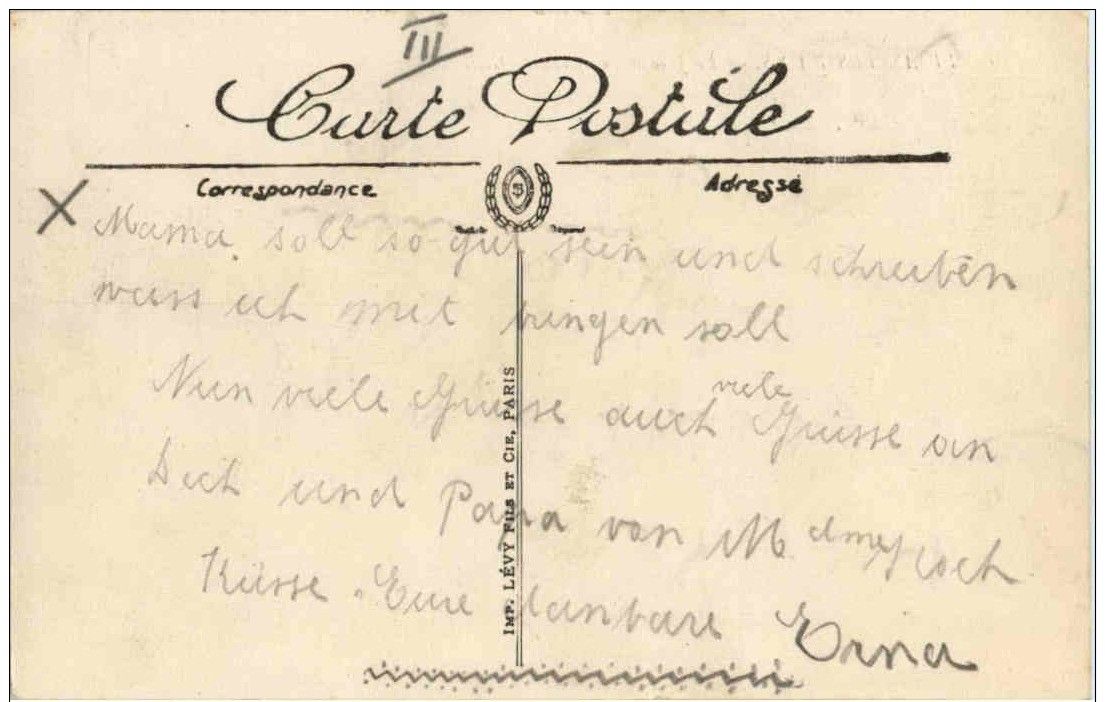 III
Carte Postale
Correspondance
Adresse
X Mama soll so gut sein und schreiben
was ich mit bringen soll
Nun viele Grüsse auch viele Grüsse an
Dich und Papa von M.
Küsse Eure dankbare Erna
IMP. LÉVY FILS ET CIE, PARIS